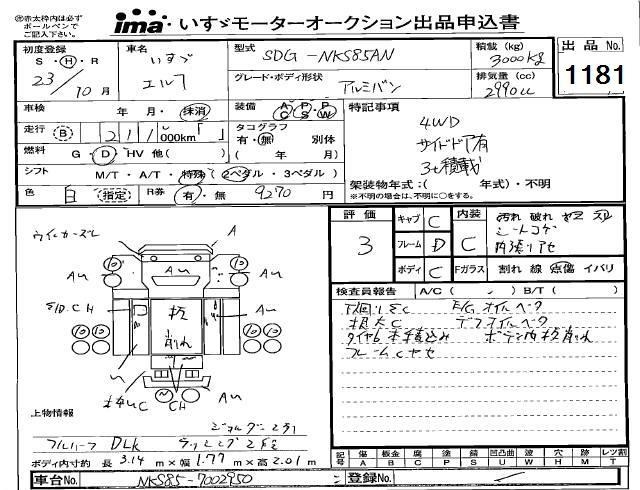 ㊟赤太枠内は必ず
ボールペンで
ご記入下さい。
ima いすゞモーターオークション出品申込書
初度登録 S・H・R 23/10月
車名 いすゞ エルフ
型式 SDG-NKS85AN
グレード・ボディ形状 アルミバン
積載(kg) 3000kg
排気量(cc) 2990cc
出品No. 1181
車検 年・月・抹消
装備 A/C P/S P/W
走行 B 211,000km「 」
タコグラフ 有・無 別体 ( 年/ 月)
燃料 G・D・HV 他( )
シフト M/T・A/T・特殊(2ペダル・3ペダル)
色 白 (指定)
R券 有・無 9270円
特記事項
4WD
サイドドア有
3t積載
架装物年式:( 年式)・不明
※不明の場合は、不明に○をする。
評価 3
キャブ C
フレーム D
ボディ C
内装 C 汚れ 破れ
シートコゲ
Fガラス 割れ 線 点傷 イバリ
検査員報告 A/C( ) B/T( )
下回りSC E/Gオイルベタ
デフオイルベタ
タイヤ6本積込み ボデー内板削れ
A
Au
Au
Au
CH
板
削れ
Au
C
CH
Au
上物情報
フルハーフ DLK
ラッシング2段
ボディ内寸約 長 3.14m×幅 1.77m×高 2.01m
記号 傷A 板金B 腐C 塗P 錆S 凹凸曲U 波W 穴H 跡M レツ割T
車台No. NKS85-7002950
登録No.